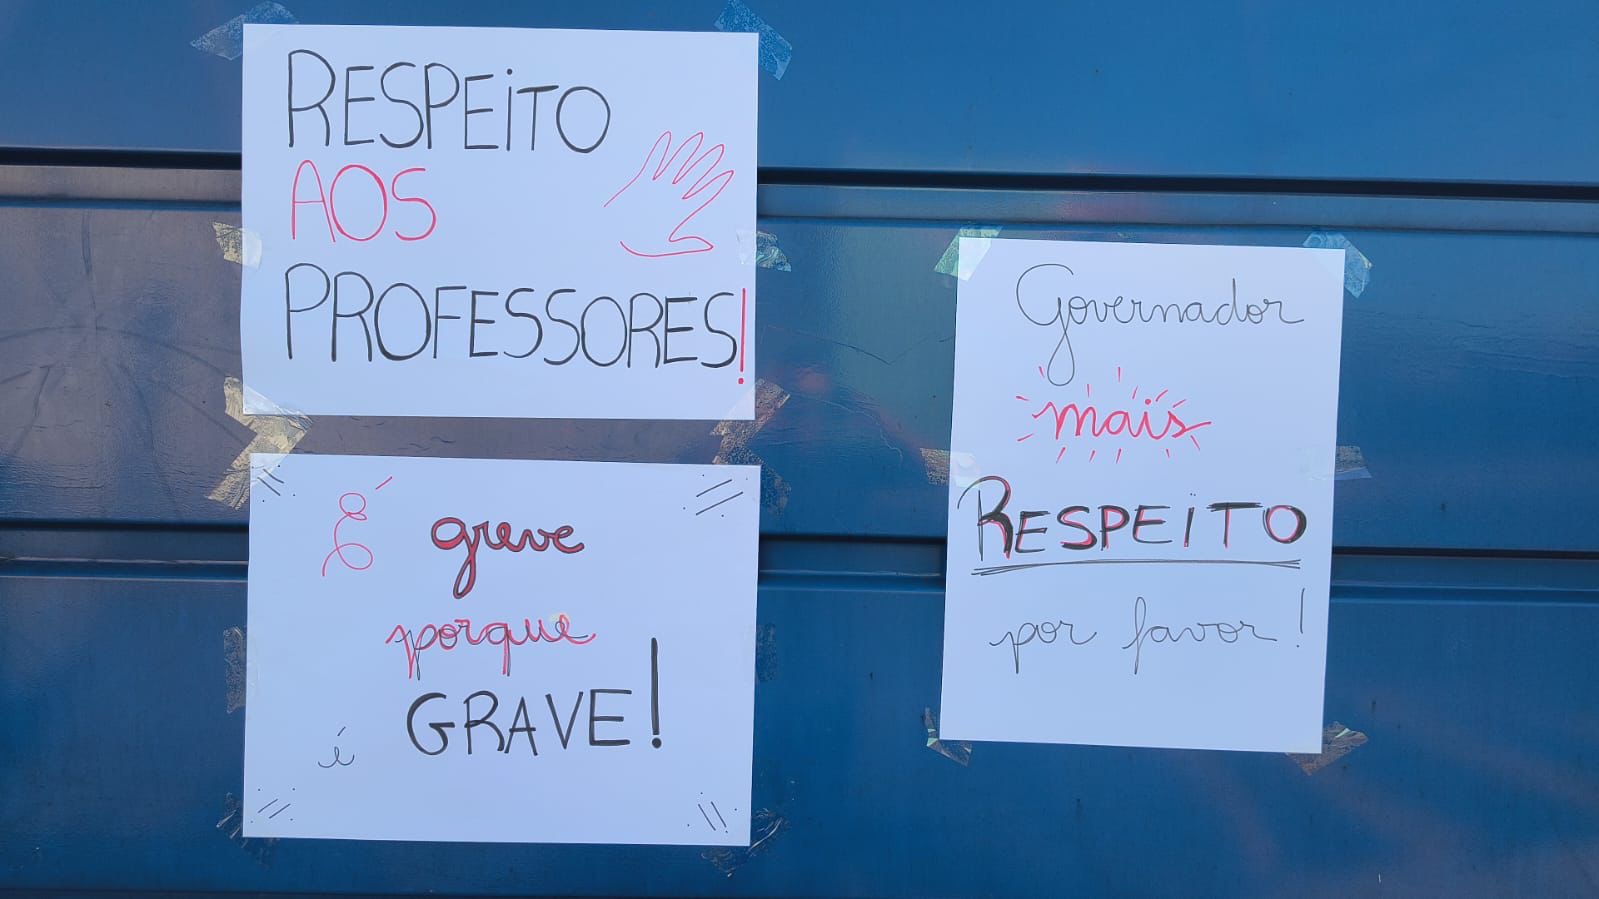 RESPEITO
AOS
PROFESSORES!
É greve
porque
é GRAVE!
Governador
mais
RESPEITO
por favor!